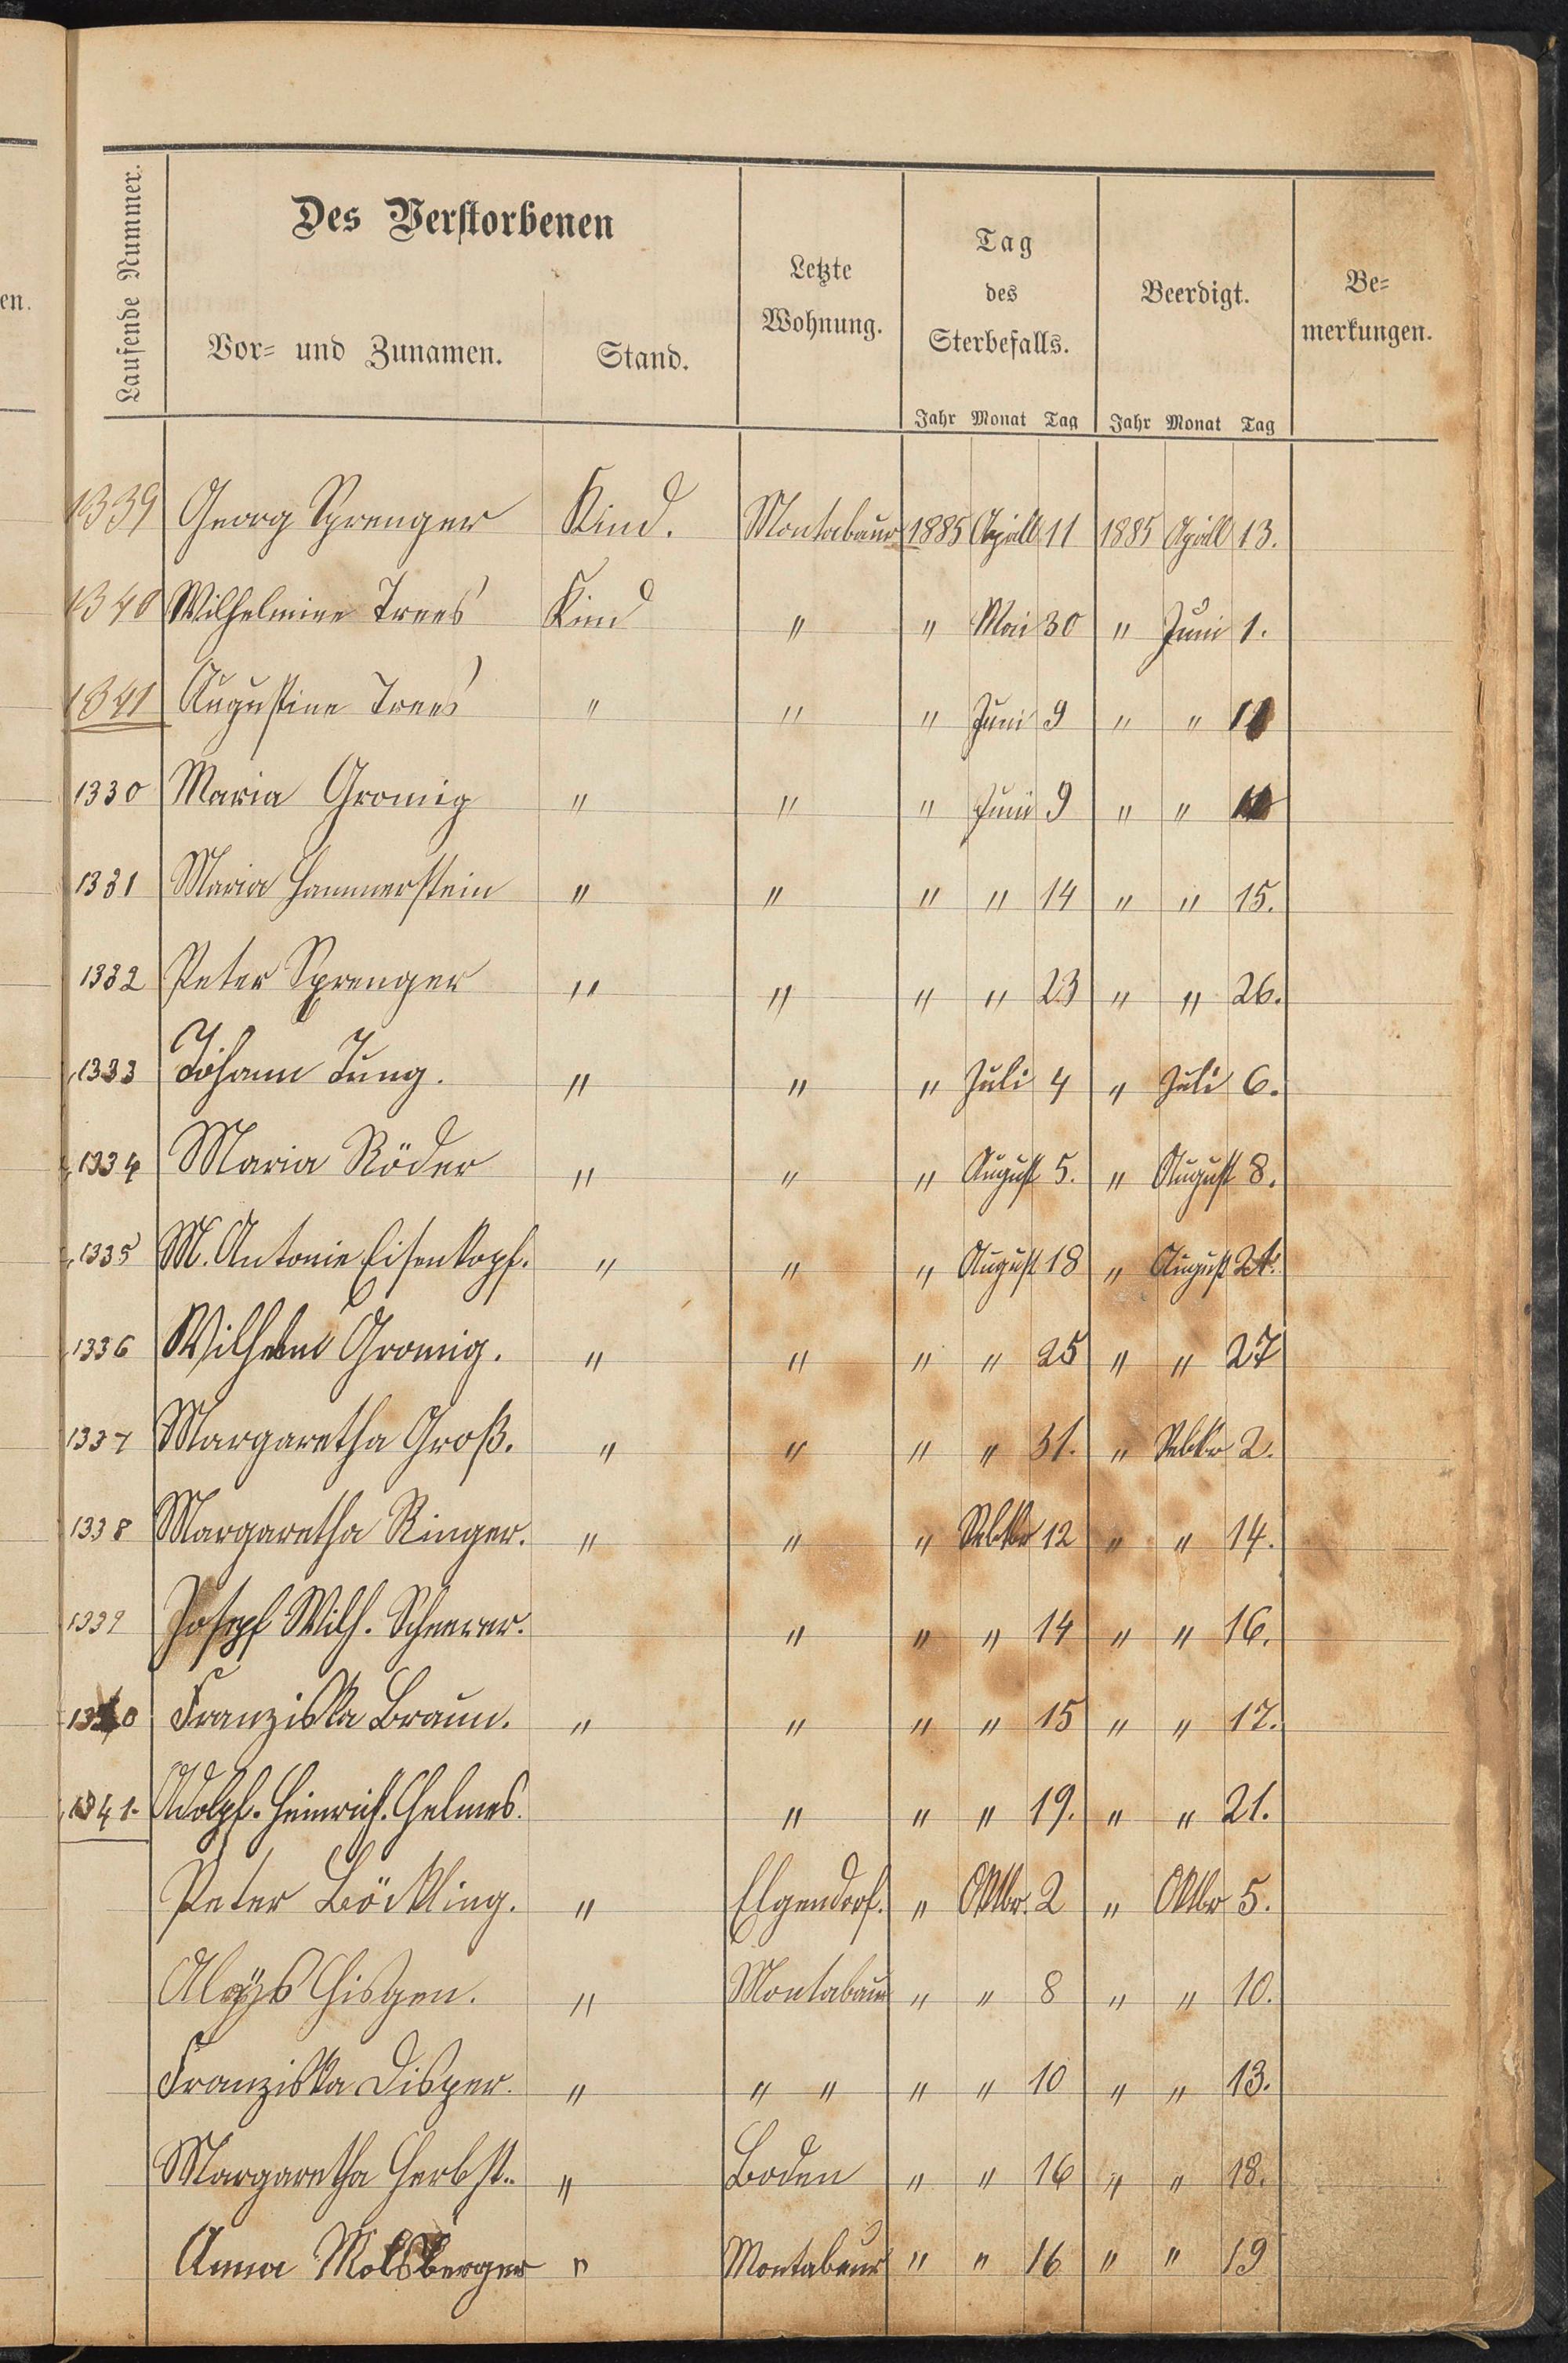 en.
Laufende Nummer.
Des Verstorbenen
Vor- und Zunamen.
Stand.
Letzte
Wohnung.
Tag
des
Sterbefalls.
Beerdigt.
Be-
merkungen.
Jahr Monat Tag Jahr Monat Tag
1339 Georg Sprenger Kind. Montabaur 1885 April 11 1885 April 13.
1340 Wilhelmine Trees Kind " " Mai 30 " Juni 1.
1341 Augustine Trees " " " Juni 9 " " 11
1330 Maria Gromig " " " Juni 9 " " 11
1331 Maria Hammerstein " " " " 14 " " 15.
1332 Peter Sprenger " " " " 23 " " 26.
1333 Johann Jung. " " " Juli 4 " Juli 6.
1334 Maria Röder " " " August 5. " August 8.
1335 M. Antonie Eisenkopf. " " " August 18 " August 21.
1336 Wilhelm Gromig. " " " " 25 " " 27
1337 Margaretha Groß. " " " " 31. " Sebtbr 2.
1338 Margaretha Ringer. " " " Sebtbr 12 " " 14.
1339 Josepf Wilh. Scheerer. " " " 14 " " 16.
1340 Franziska Braun. " " " " 15 " " 17.
1341. Adolpf. Heinrich. Helmes. " " " 19. " " 21.
Peter Böckling. " Elgendorf. " Oktbr. 2 " Oktbr 5.
Aloys Hisgen. " Montabaur " " 8 " " 10.
Franziska Disper. " " " " " 10 " " 13.
Margaretha Herbst. " Boden " " 16 " " 18.
Anna Molsberger " Montabaur " " 16 " " 19